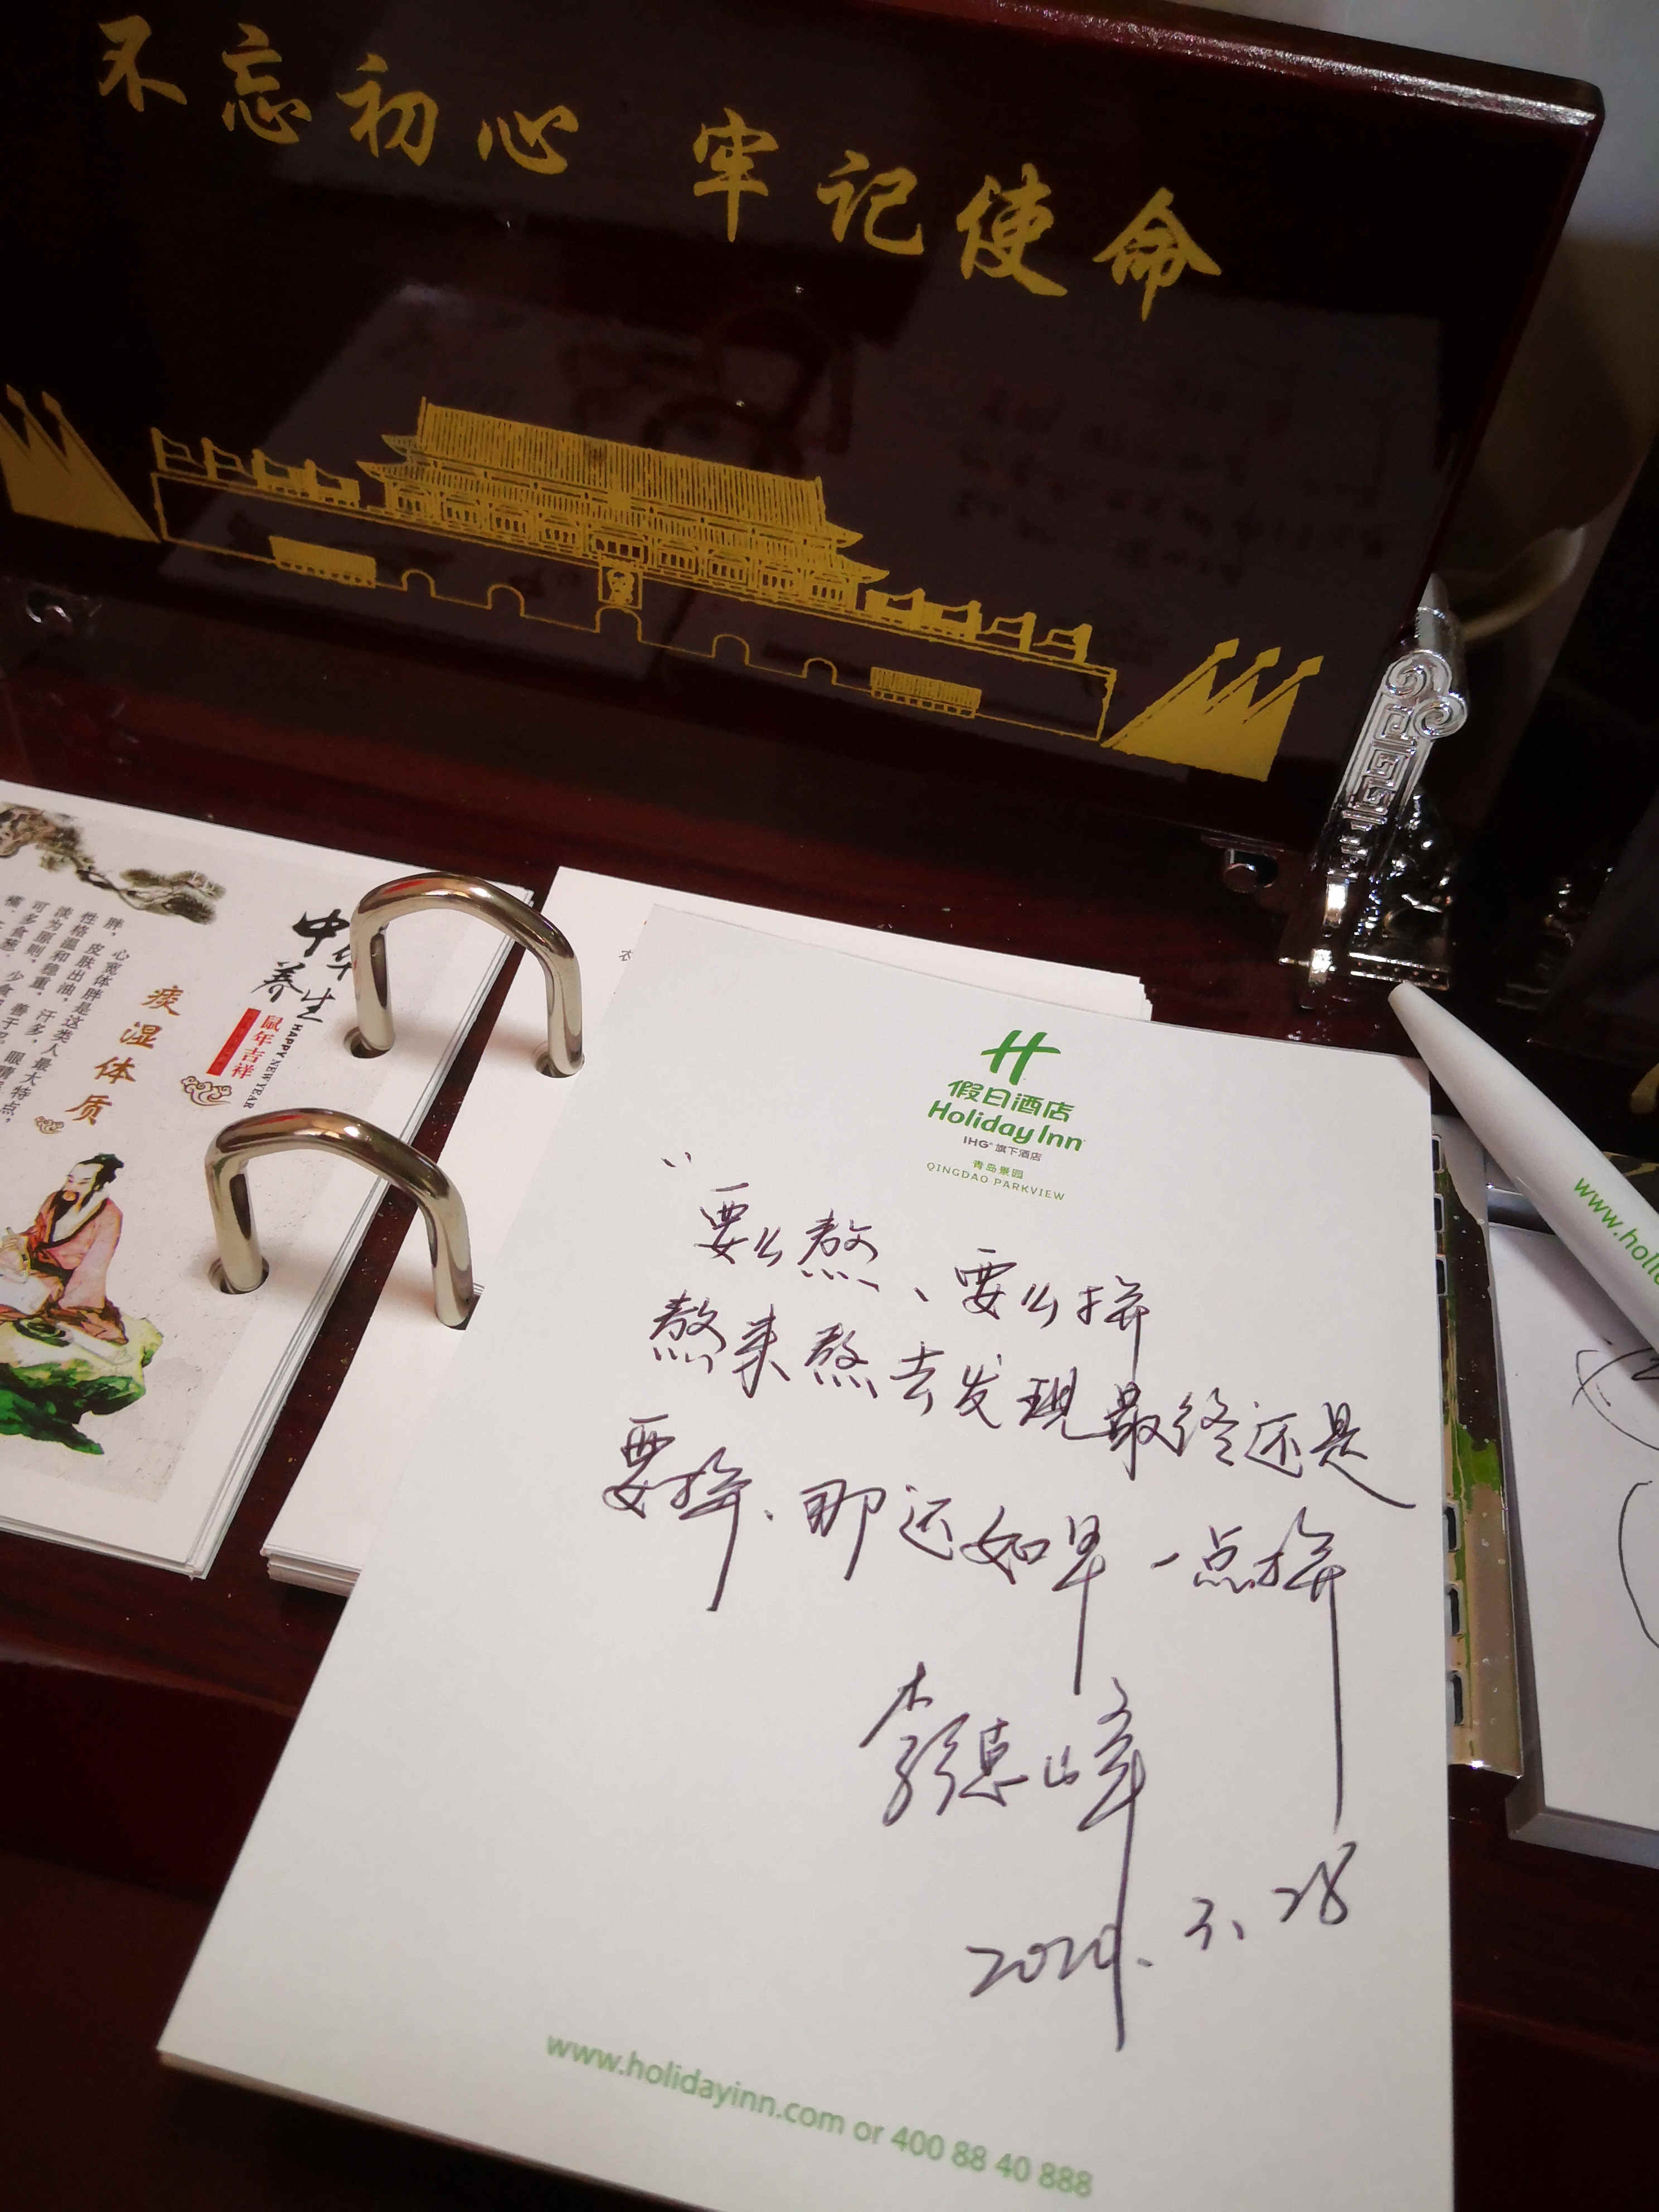 不忘初心 牢记使命
中华养生
鼠年吉祥
HAPPY NEW YEAR
痰湿体质
胖，心宽体胖是这类人最大特点，
性格温和稳重，善于
淡为原则，
可多食葱，少食
假日酒店
Holiday Inn
IHG® 旗下酒店
青岛景园
QINGDAO PARKVIEW
“要么熬、要么拚
熬来熬去发现最终还是
要拚、那还如早一点拚
2020.3.28
www.holidayinn.com or 400 88 40 888
www.holi